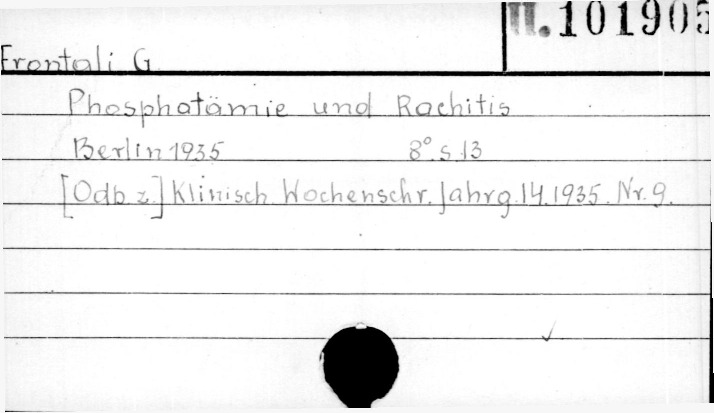 II. 101905
Frontali G.
Phosphatämie und Rachitis
Berlin 1935 8°. s. 13
[Odb. z.] Klinisch. Wochenschr. Jahrg. 14. 1935. Nr. 9.